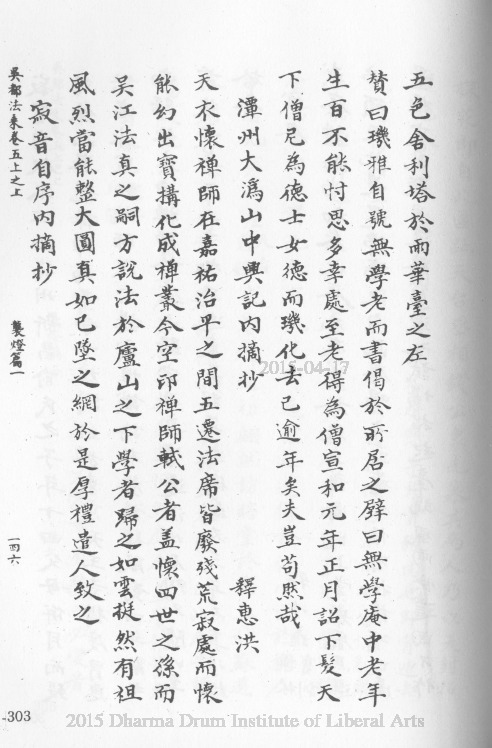 五色舍利塔於雨華臺之左
贊曰璣雅自號無學老而書偈於所居之壁曰無學庵中老平
生百不能忖思多幸處至老得為僧宣和元年正月詔下髮天
下僧尼為德士女德而璣化去已逾年矣夫豈苟然哉
潭州大溈山中興記內摘抄 釋惠洪
天衣懷禪師在嘉祐治平之間五遷法席皆廢殘荒寂處而懷
能幻出寶搆化成禪叢今空印禪師軾公者盖懷四世之孫而
吳江法真之嗣方說法於廬山之下學者歸之如雲挺然有祖
風烈當能整大圓真如已墜之網於是厚禮遣人致之
寂音自序內摘抄
吳都法乘卷五上之上 襲燈篇一 一四六
-303
2015-04-17
2015 Dharma Drum Institute of Liberal Arts